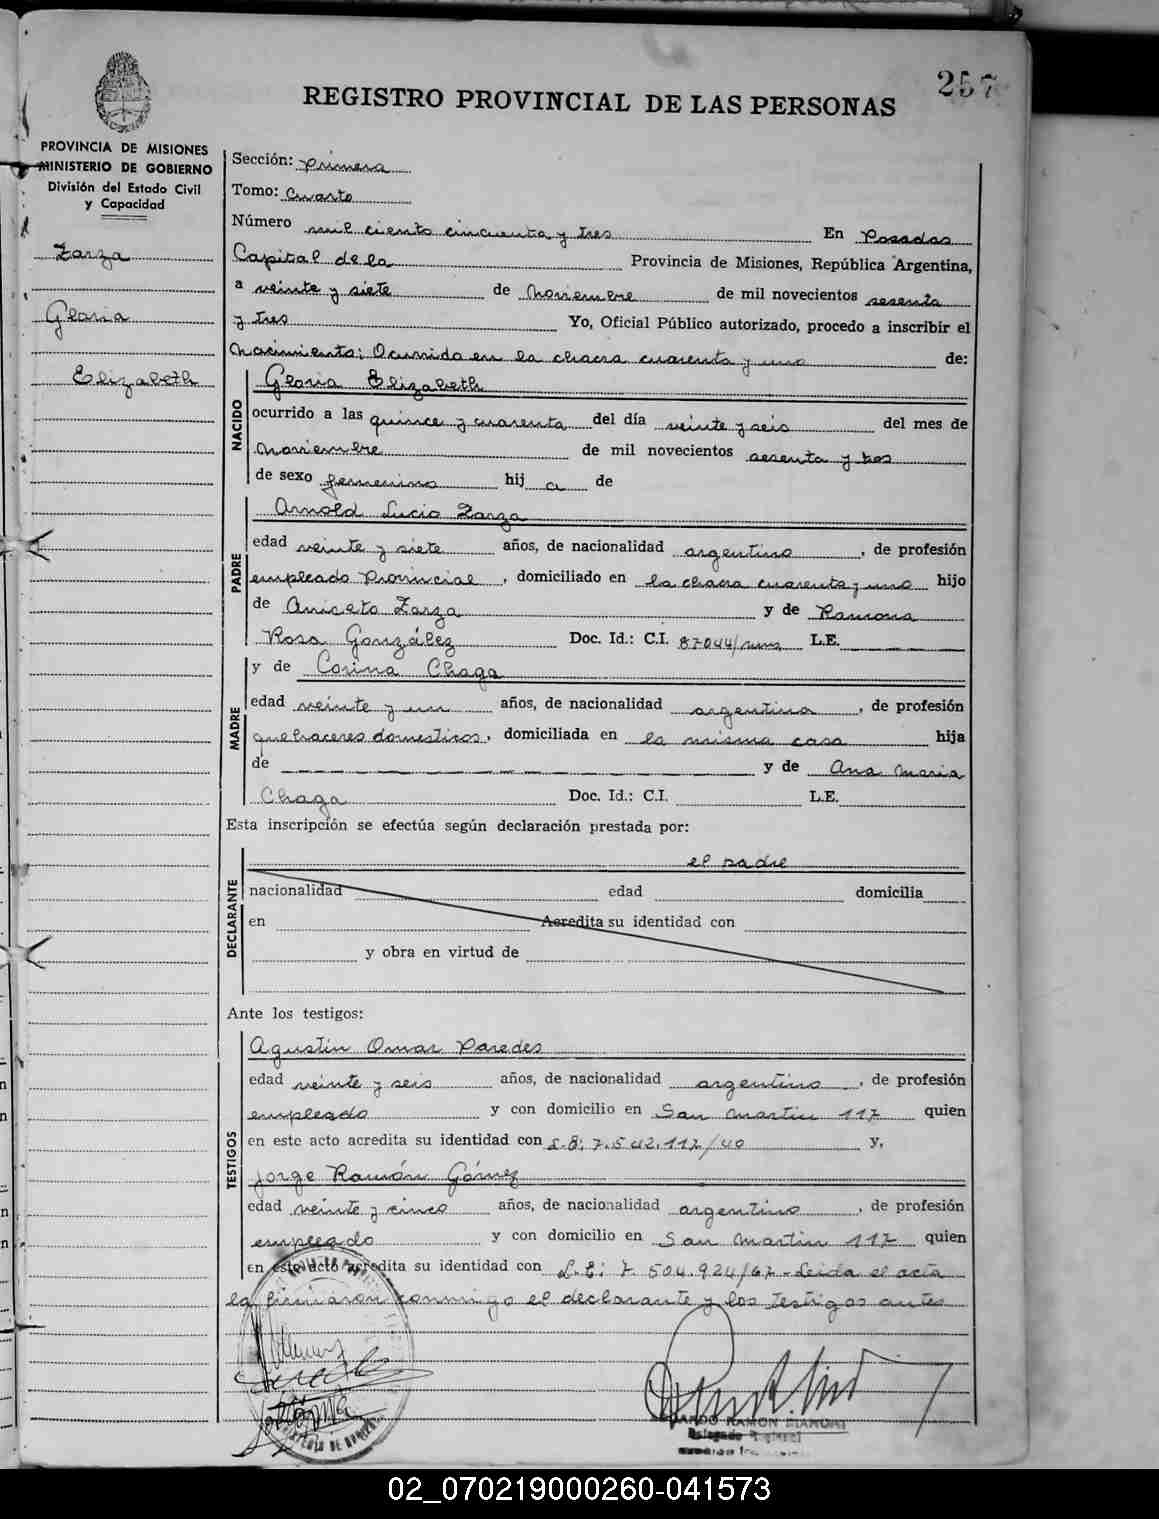 257
REGISTRO PROVINCIAL DE LAS PERSONAS
PROVINCIA DE MISIONES
MINISTERIO DE GOBIERNO
División del Estado Civil
y Capacidad
Zarza
Gloria
Elizabeth
Sección: primera
Tomo: Cuarto
Número mil ciento cincuenta y tres En Posadas
Capital de la Provincia de Misiones, República Argentina,
a veinte y siete de noviembre de mil novecientos sesenta
y tres Yo, Oficial Público autorizado, procedo a inscribir el
nacimiento: Ocurrido en la chacra cuarenta y uno de:
NACIDO
Gloria Elizabeth
ocurrido a las quince y cuarenta del día veinte y seis del mes de
noviembre de mil novecientos sesenta y
de sexo femenino hij a de
PADRE
Arnold Lucio Zarza
edad veinte y siete años, de nacionalidad argentino, de profesión
empleado Provincial, domiciliado en la chacra cuarenta y uno hijo
de Aniceto Zarza y de Ramona
Rosa González Doc. Id.: C.I. 87044/mns L.E.
y de Corina Chaga
MADRE
edad veinte y un años, de nacionalidad argentina, de profesión
quehaceres domesticos, domiciliada en la misma casa hija
de y de Ana Maria
Chaga Doc. Id.: C.I. L.E.
Esta inscripción se efectúa según declaración prestada por:
DECLARANTE
el padre
nacionalidad edad domicilia
en Acredita su identidad con
y obra en virtud de
Ante los testigos:
TESTIGOS
Agustin Omar Paredes
edad veinte y seis años, de nacionalidad argentino, de profesión
empleado y con domicilio en San Martin 117 quien
en este acto acredita su identidad con L.E: 7.542.117/40 y,
Jorge Ramón Gómez
edad veinte y cinco años, de nacionalidad argentino, de profesión
empleado y con domicilio en San Martin 117 quien
en este acto acredita su identidad con L.E: 7.504.924/67 - Leida el acta
la firmaron conmigo el declarante y los testigos antes
RAMON
Delegado
02_070219000260-041573